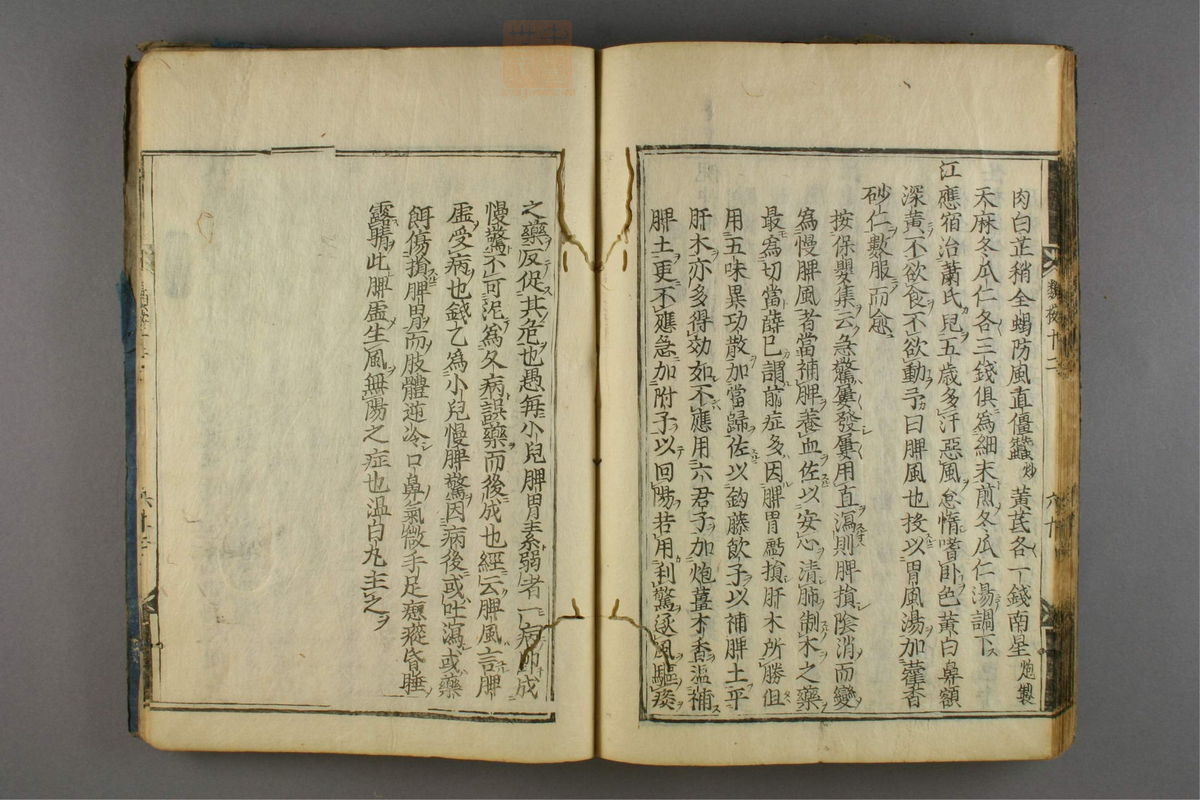 肉白芷稍全蝎防風直僵蠶炒黃芪各一錢南星炮製
天麻冬瓜仁各三錢俱為細末煎冬瓜仁湯調下
江應宿治蕭氏兒五歲多汗惡風怠惰嗜卧色黄白鼻額
深黄不欲食不欲動予曰脾風也投以胃風湯加藿香
砂仁數服而愈
按保嬰集云急驚屢發屢用直瀉則脾損陰消而變
為慢脾風者當補脾養血佐以安心清肺制木之藥
最為切當薛已謂前症多因脾胃虧損肝木所勝但
用五味異功散加當歸佐以鈎藤飲子以補脾土平
肝木亦多得効如不應用六君子加炮薑木香温補
脾土更不應急加附子以回陽若用利驚逐風驅痰
之藥反促其危也愚每小兒脾胃素弱者一病即成
慢驚不可泥為久病誤藥而後成也經云脾風言脾
虛受病也錢乙為小兒慢脾驚因病後或吐瀉或藥
餌傷損脾胃而肢體逆冷口鼻氣微手足瘛瘲昏睡
露睛此脾虛生風無陽之症也温白丸主之